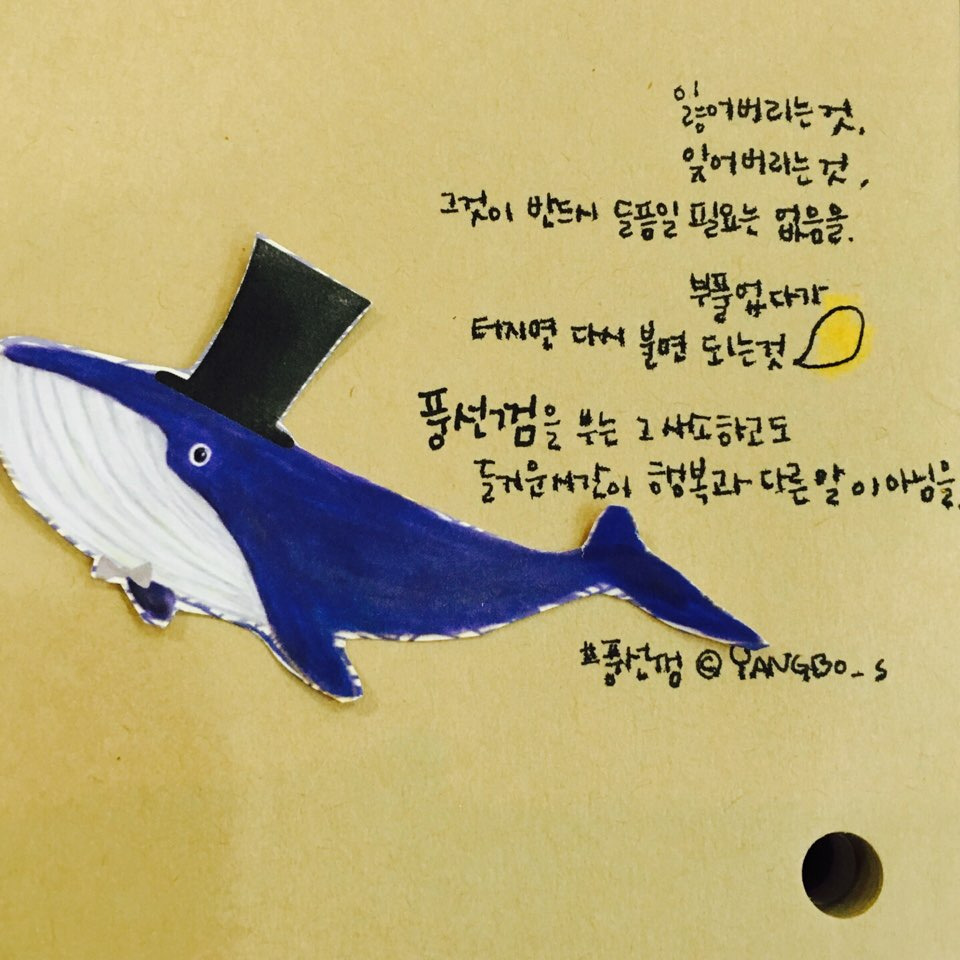 잃어버리는 것,
잊어버리는 것,
그것이 반드시 슬픔일 필요는 없음을.
부풀업다가
터지면 다시 불면 되는것
풍선껌을 부는 그 사소하고도
즐거운시간이 행복과 다른말이아님을.
#풍선껌 © YANGBO_S